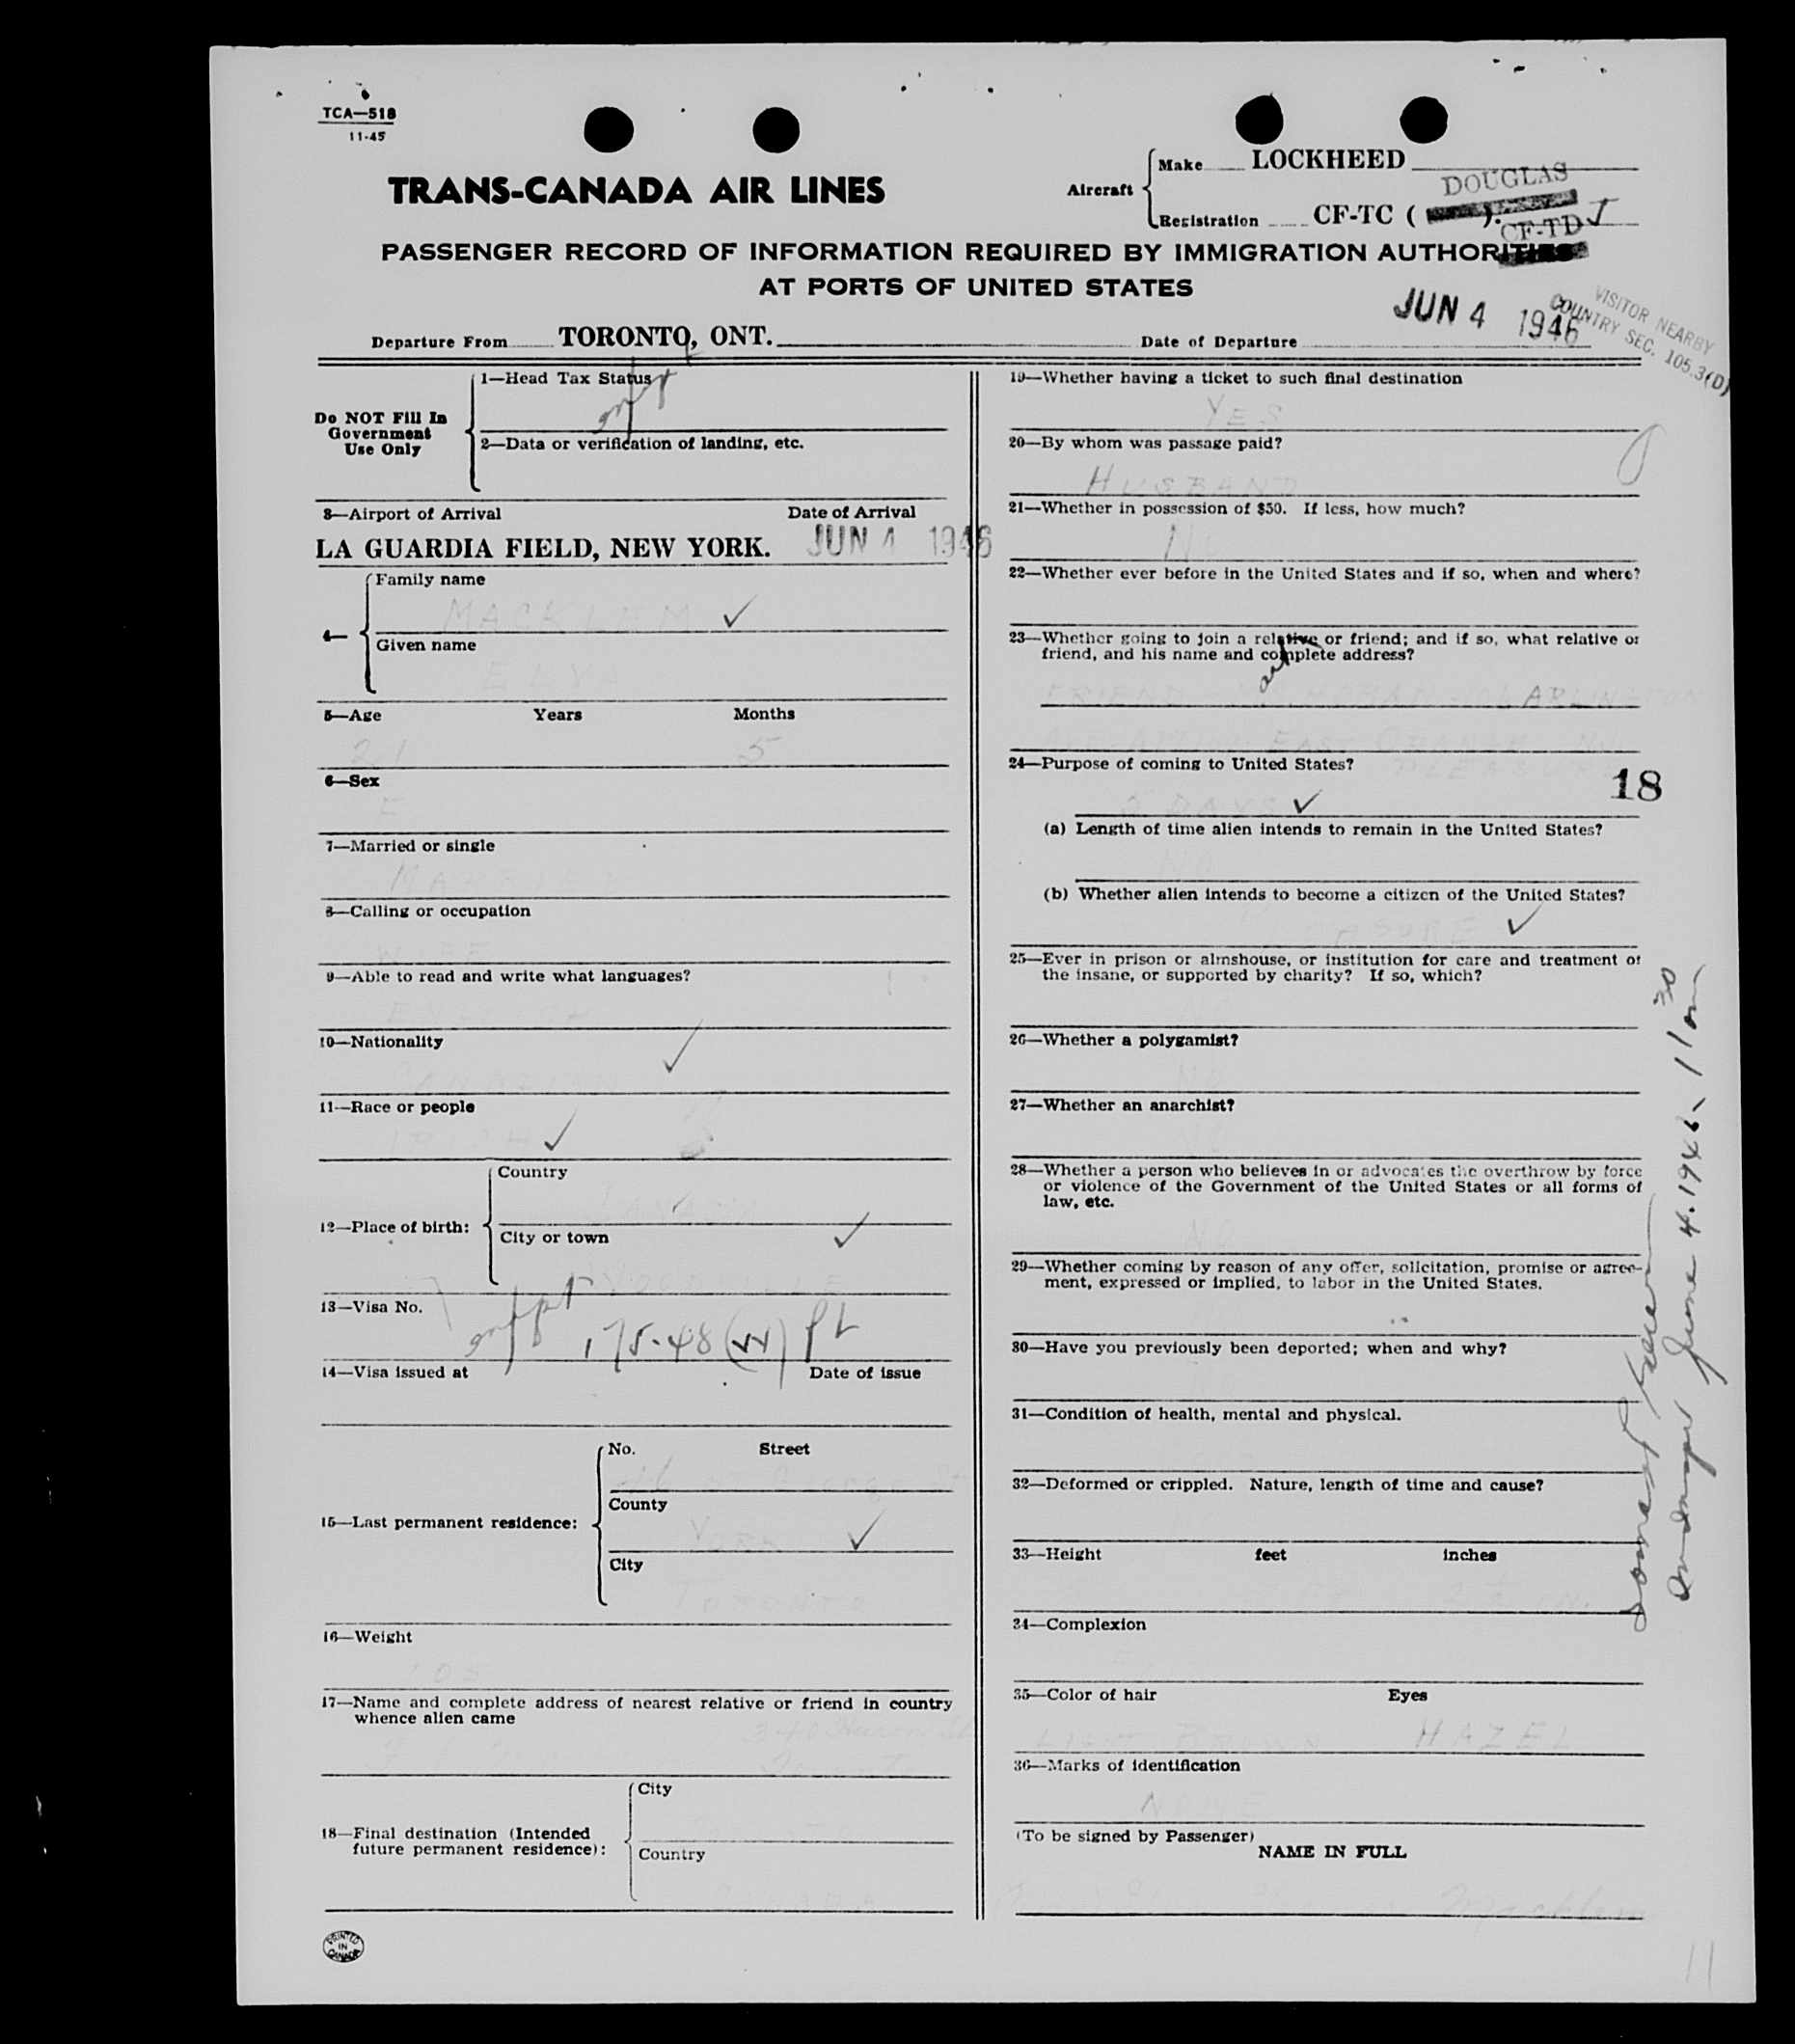 TCA—518
11-45
TRANS-CANADA AIR LINES
Aircraft
Make LOCKHEED
DOUGLAS
Registration CF-TC (
).
CF-TD J
PASSENGER RECORD OF INFORMATION REQUIRED BY IMMIGRATION AUTHORITIES
AT PORTS OF UNITED STATES
VISITOR NEARBY
COUNTRY SEC. 105.3(D)
Departure From TORONTO, ONT.
Date of Departure JUN 4 1946
Do NOT Fill In
Government
Use Only
1—Head Tax Status
2—Data or verification of landing, etc.
3—Airport of Arrival Date of Arrival
LA GUARDIA FIELD, NEW YORK. JUN 4 1946
4—
Family name
MACKLAM ✓
Given name
5—Age Years Months
21 5
6—Sex
F
7—Married or single
MARRIED
8—Calling or occupation
WIFE
9—Able to read and write what languages?
ENGLISH
10—Nationality
CANADIAN ✓
11—Race or people
IRISH ✓
12—Place of birth:
Country
CANADA
City or town ✓
13—Visa No.
175.48
14—Visa issued at Date of issue
15—Last permanent residence:
No. Street
George St
County
YORK ✓
City
TORONTO
16—Weight
105
17—Name and complete address of nearest relative or friend in country
whence alien came
340 Huron St
18—Final destination (Intended
future permanent residence):
City
Country
CANADA
PRINTED
IN
CANADA
19—Whether having a ticket to such final destination
YES
20—By whom was passage paid?
HUSBAND
21—Whether in possession of $50. If less, how much?
NO
22—Whether ever before in the United States and if so, when and where?
23—Whether going to join a relative or friend; and if so, what relative or
friend, and his name and complete address?
FRIEND ARLINGTON
EAST ORANGE N.J.
24—Purpose of coming to United States?
PLEASURE
18
2 DAYS ✓
(a) Length of time alien intends to remain in the United States?
NO
(b) Whether alien intends to become a citizen of the United States?
PLEASURE ✓
25—Ever in prison or almshouse, or institution for care and treatment of
the insane, or supported by charity? If so, which?
NO
26—Whether a polygamist?
NO
27—Whether an anarchist?
NO
28—Whether a person who believes in or advocates the overthrow by force
or violence of the Government of the United States or all forms of
law, etc.
NO
29—Whether coming by reason of any offer, solicitation, promise or agree-
ment, expressed or implied, to labor in the United States.
30—Have you previously been deported; when and why?
31—Condition of health, mental and physical.
32—Deformed or crippled. Nature, length of time and cause?
33—Height feet inches
34—Complexion
35—Color of hair Eyes
LIGHT BROWN HAZEL
36—Marks of identification
NONE
(To be signed by Passenger)
NAME IN FULL
Macklam
June 4. 1946
11